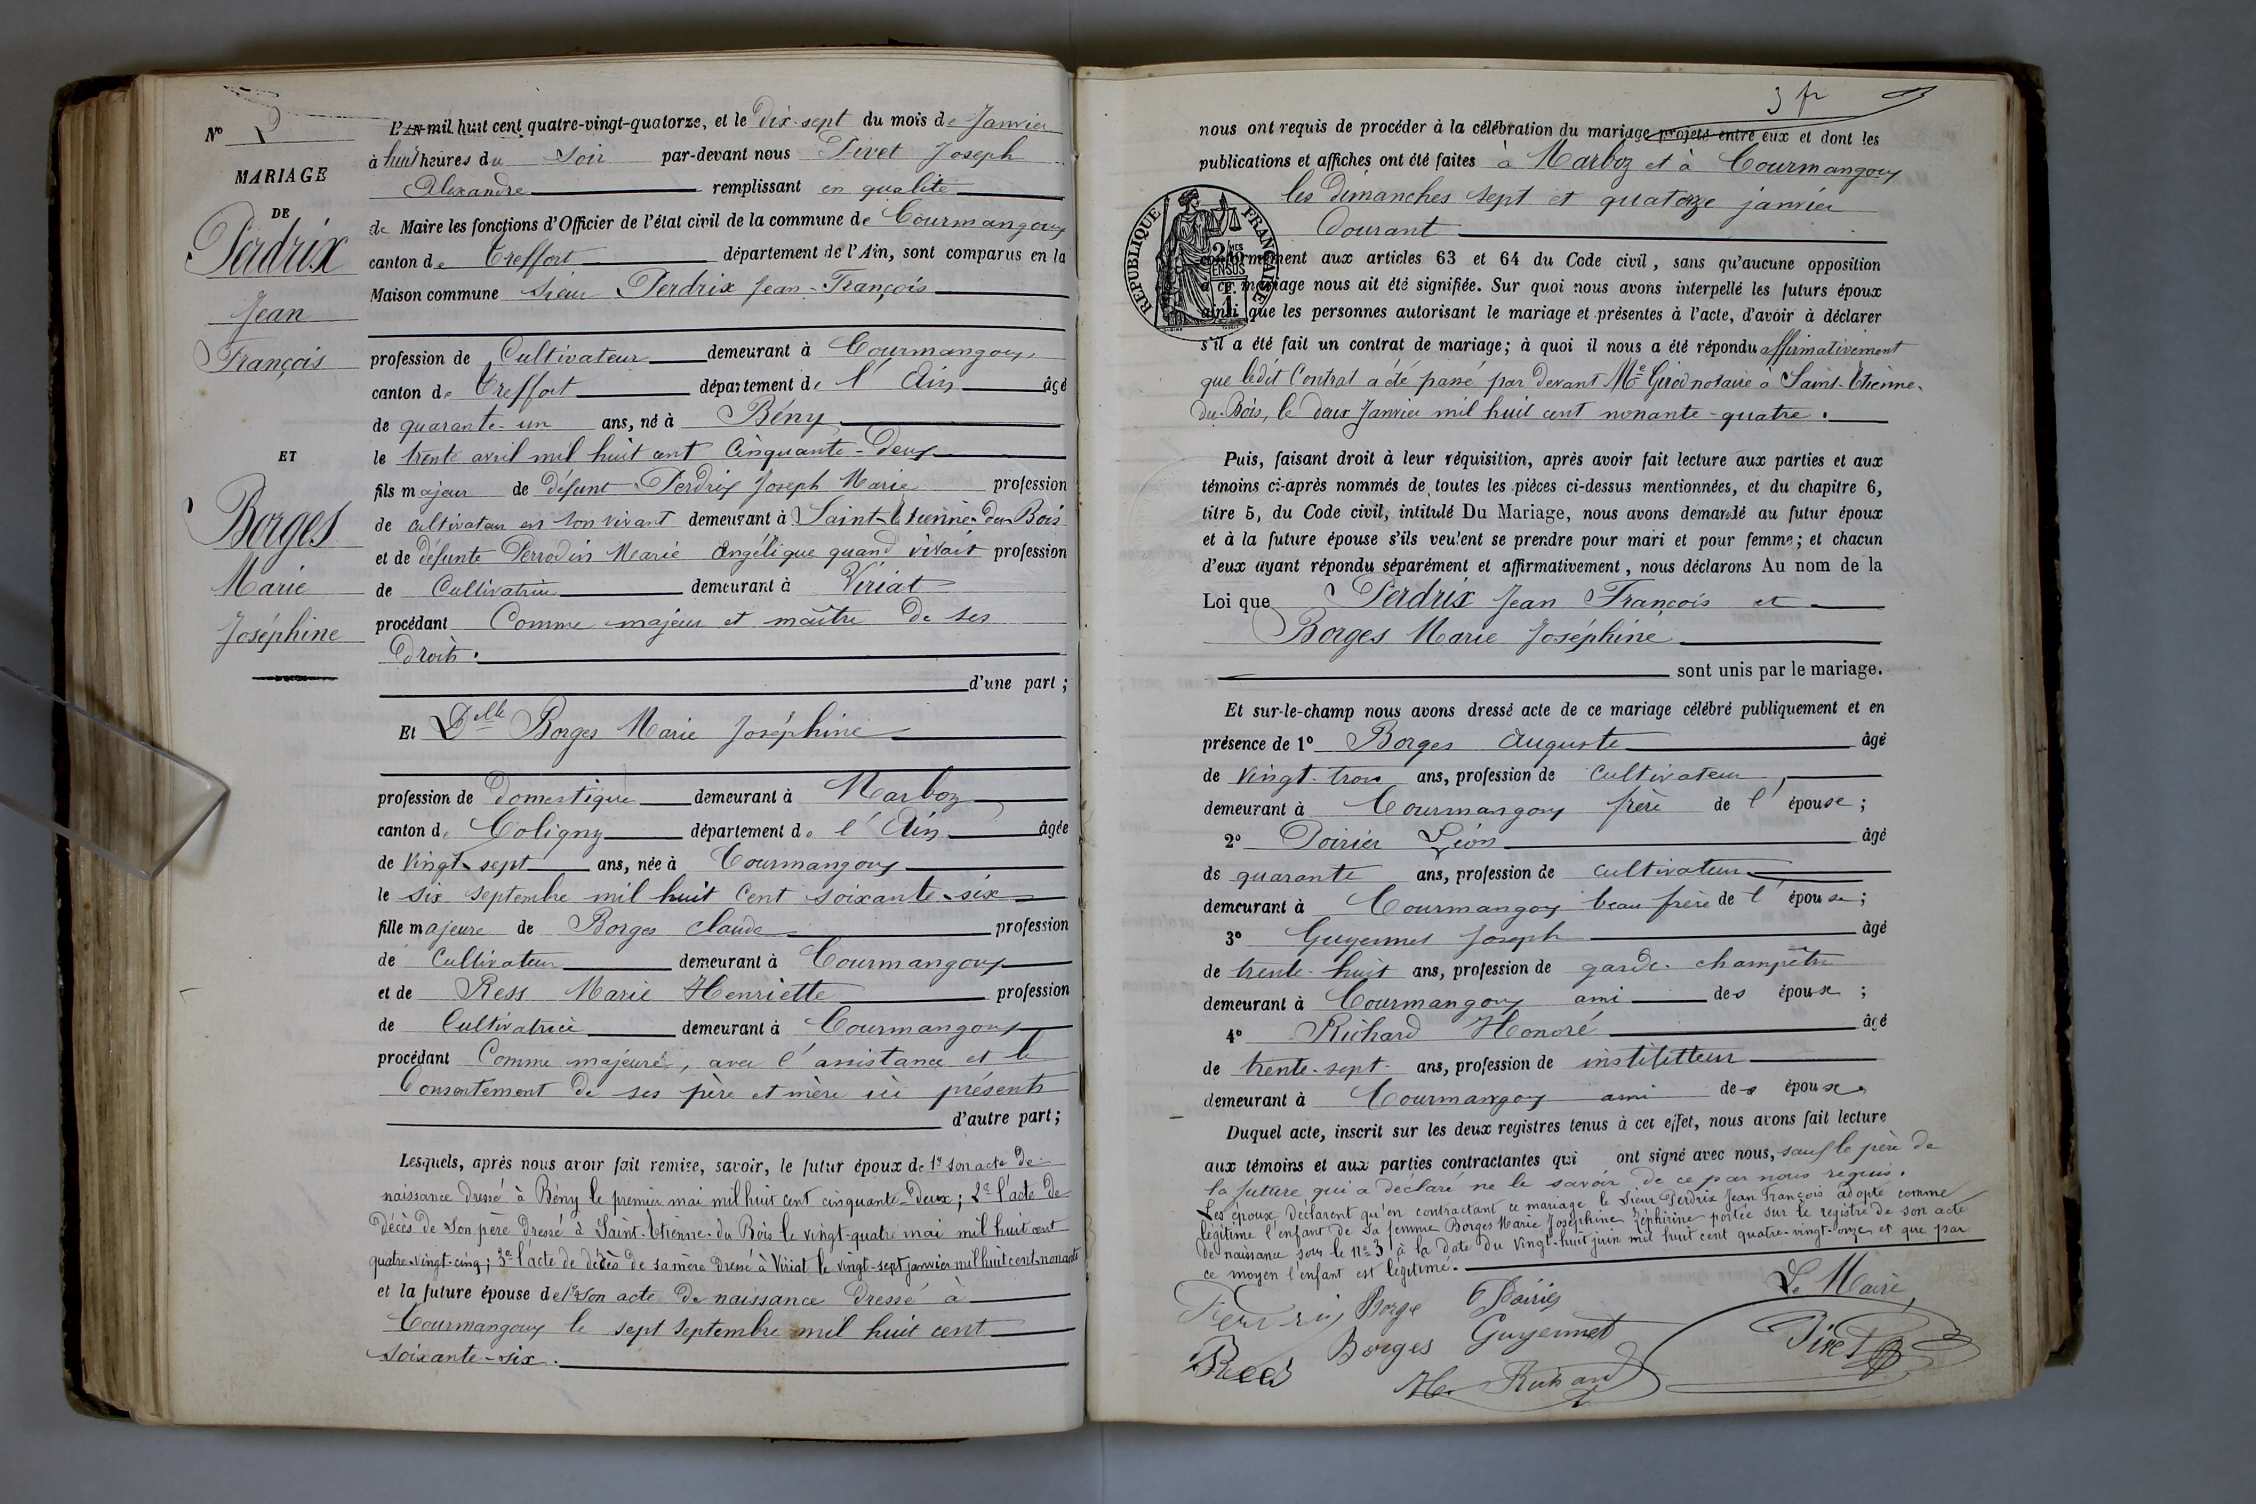 N° 2
MARIAGE
DE
Perdrix
Jean
François
ET
Borges
Marie
Joséphine
L'AN mil huit cent quatre-vingt-quatorze, et le Dix-sept du mois de Janvier
à huit heures du Soir par-devant nous Pivet Joseph
Alexandre remplissant en qualité
de Maire les fonctions d'Officier de l'état civil de la commune de Courmangoux
canton de Treffort département de l'Ain, sont comparus en la
Maison commune Sieur Perdrix Jean-François
profession de Cultivateur demeurant à Courmangoux
canton de Treffort département de l'Ain âgé
de quarante-un ans, né à Bény
le trente avril mil huit cent Cinquante-Deux
fils majeur de défunt Perdrix Joseph Marie profession
de cultivateur en son vivant demeurant à Saint-Etienne-du-Bois
et de défunte Perrodin Marie Angélique quand vivait profession
de Cultivatrice demeurant à Viriat
procédant Comme majeur et maître de ses
Droits.
d'une part ;
Et Delle Borges Marie Joséphine
profession de Domestique demeurant à Marboz
canton de Coligny département de l'Ain âgée
de vingt-sept ans, née à Courmangoux
le six septembre mil huit cent soixante-six
fille majeure de Borges Claude profession
de Cultivateur demeurant à Courmangoux
et de Ress Marie Henriette profession
de Cultivatrice demeurant à Courmangoux
procédant Comme majeure, avec l'assistance et le
Consentement de ses père et mère ici présents
d'autre part ;
Lesquels, après nous avoir fait remise, savoir, le futur époux de 1° son acte de
naissance dressé à Bény le premier mai mil huit cent cinquante-Deux ; 2° l'acte de
décès de son père dressé à Saint-Etienne-du Bois le vingt-quatre mai mil huit cent
quatre-vingt-cinq ; 3° l'acte de décès de sa mère dressé à Viriat le vingt-sept janvier mil huit cent nonante
et la future épouse de 1° son acte de naissance dressé à
Courmangoux le sept septembre mil huit cent
soixante-six.
3 fr
nous ont requis de procéder à la célébration du mariage projeté entre eux et dont les
publications et affiches ont été faites à Marboz et à Courmangoux
les dimanches sept et quatorze janvier
Courant
RÉPUBLIQUE FRANÇAISE
conformément aux articles 63 et 64 du Code civil, sans qu'aucune opposition
à ce mariage nous ait été signifiée. Sur quoi nous avons interpellé les futurs époux
ainsi que les personnes autorisant le mariage et présentes à l'acte, d'avoir à déclarer
s'il a été fait un contrat de mariage ; à quoi il nous a été répondu affirmativement
que ledit Contrat a été passé par devant Me Girod notaire à Saint-Etienne-
du-Bois, le deux Janvier mil huit cent nonante-quatre.
Puis, faisant droit à leur réquisition, après avoir fait lecture aux parties et aux
témoins ci-après nommés de toutes les pièces ci-dessus mentionnées, et du chapitre 6,
titre 5, du Code civil, intitulé Du Mariage, nous avons demandé au futur époux
et à la future épouse s'ils veulent se prendre pour mari et pour femme ; et chacun
d'eux ayant répondu séparément et affirmativement, nous déclarons Au nom de la
Loi que Perdrix Jean François et
Borges Marie Joséphine
sont unis par le mariage.
Et sur-le-champ nous avons dressé acte de ce mariage célébré publiquement et en
présence de 1° Borges Auguste âgé
de vingt-trois ans, profession de cultivateur,
demeurant à Courmangoux frère de l'épouse ;
2° Poirier Léon âgé
de quarante ans, profession de cultivateur
demeurant à Courmangoux beau frère de l'épouse ;
3° Guyennet Joseph âgé
de trente-huit ans, profession de garde-champêtre
demeurant à Courmangoux ami des époux ;
4° Richard Honoré âgé
de trente-sept ans, profession de instituteur
demeurant à Courmangoux ami des époux
Duquel acte, inscrit sur les deux registres tenus à cet effet, nous avons fait lecture
aux témoins et aux parties contractantes qui ont signé avec nous, sauf le père de
la future qui a déclaré ne le savoir de ce par nous requis.
Les époux déclarent qu'en contractant ce mariage le Sieur Perdrix Jean François adopte comme
légitime l'enfant de sa femme Borges Marie Joséphine Zéphirine portée sur le registre de son acte
de naissance sous le n° 3 à la date du vingt-huit juin mil huit cent quatre-vingt-onze et que par
ce moyen l'enfant est légitimé.
Perdrix Borge Poirier Le Maire,
Rees Borges Guyennet Pivet
H. Richard